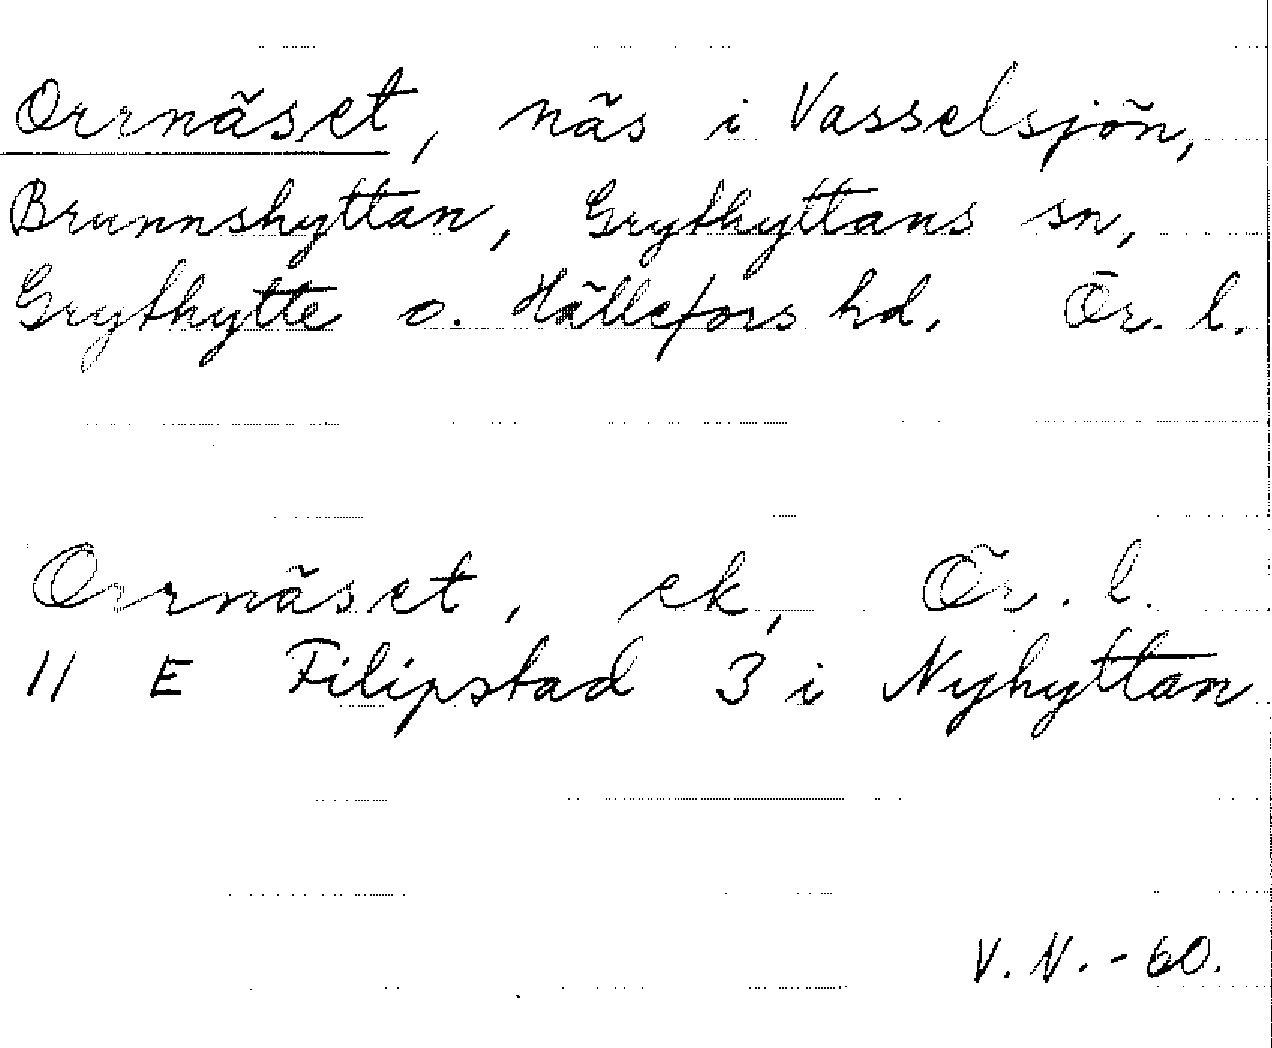 Orrnäset, näs i Vasselsjön,
Brunnshyttan, Grythyttans sn,
Grythytte o. Hällefors hd. Ör. l.
Orrnäset, ek, Ör. l.
11 E Filipstad 3 i Nyhyttan
V. N. - 60.